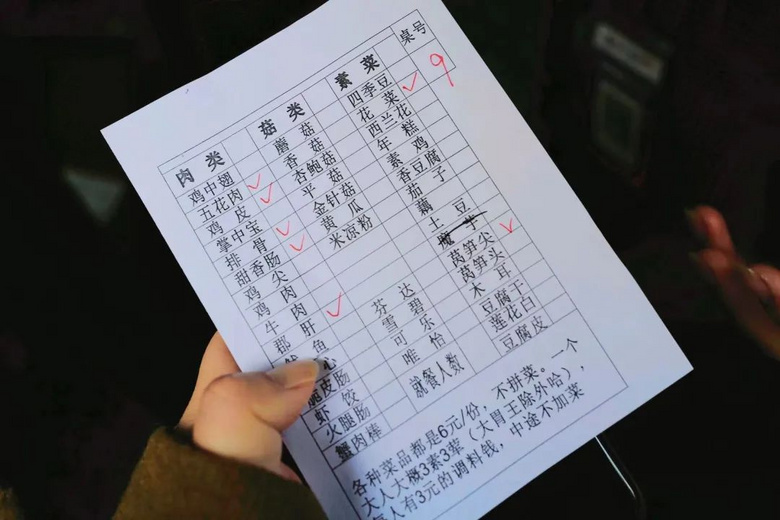 肉类
鸡中翅
五花肉
鸡皮
掌中宝
排骨
甜香肠
鸡尖
鸡肉
牛肉
郡肝
鱼
心
脆皮肠
虾饺
火腿肠
蟹肉棒
菇类
蘑菇
香菇
杏鲍菇
平菇
金针菇
黄瓜
米凉粉
芬达
雪碧
可乐
唯怡
就餐人数
素菜
四季豆
花菜
西兰花
年糕
素鸡
香豆腐
茄子
藕
土豆
莴笋尖
莴笋头
木耳
豆腐干
莲花白
豆腐皮
桌号
9
各种菜品都是6元/份，不拼菜。一个
大人大概3素3荤（大胃王除外哈），
每人有3元的调料钱，中途不加菜